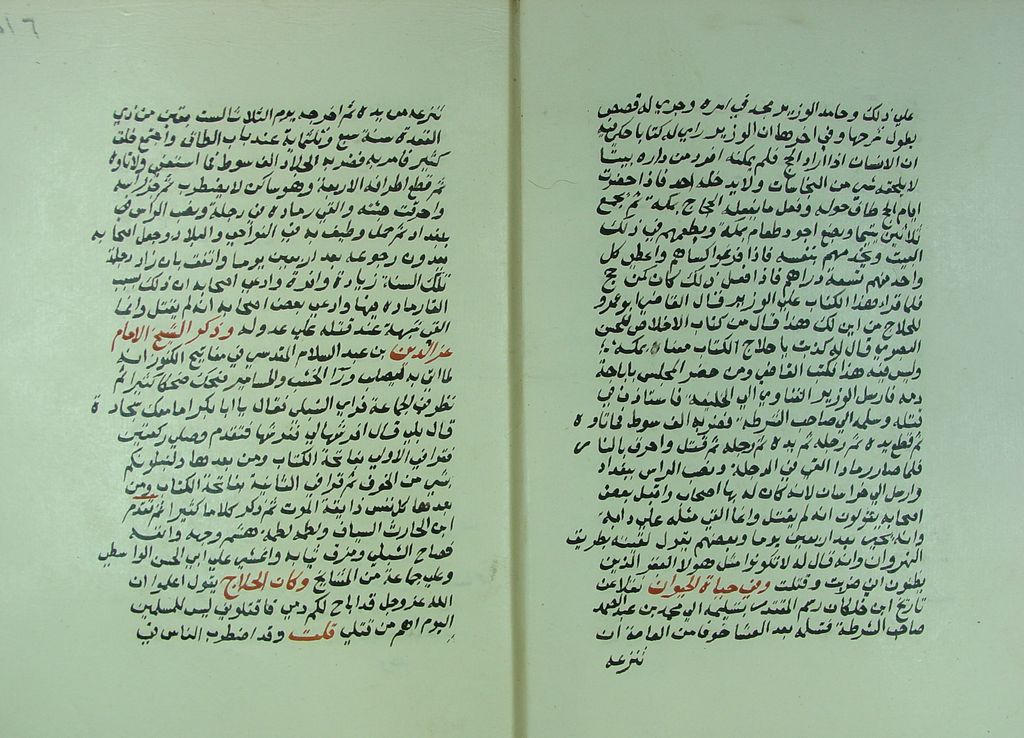 علي ذلك وحامد الوزير مجد في امره وجري له قصص
يطول شرحها وفي اخرها ان الوزير راي له كتابا حكي فيه
ان الانسان اذا اراد الحج فلم يمكنه افرد من داره بيتا
لا يلحقه شي من النجاسات ولا يدخله احد فاذا حضرت
ايام الحج طاف حوله وفعل ما يفعله الحجاج بمكة ثم يجمع
ثلاثين يتيما ويصنع اجود طعام يمكنه ويطعمهم في ذلك
البيت ويخدمهم بنفسه فاذا فرغوا كساهم واعطي كل
واحد منهم سبعة دراهم فاذا فعل ذلك كان كمن حج
فلما قرا هذا الكتاب علي الوزير قال القاضي ابو عمرو
للحلاج من اين لك هذا قال من كتاب الاخلاص للحسن
البصري قال له كذبت يا حلاج الكتاب سمعناه بمكة
وليس فيه هذا فكتب القاضي ومن حضر المجلس باباحة
دمه فارسل الوزير الفتاوي الي الخليفة فاستاذن في
قتله وسلمه الي صاحب الشرطة فضربه الف سوط فما تاوه
ثم قطع يده ثم رجله ثم يده ثم رجله ثم قتل واحرق بالنار
فلما صار رمادا القي في الدجلة ونصب الراس ببغداد
وارسل الي خراسان لانه كان له بها اصحاب واقبل بعض
اصحابه يقولون انه لم يقتل وانما القي مثله علي دابة
وانه يجي بعد اربعين يوما وبعضهم يقول لقيته بطريق
النهروان وانه قال له لا تكونوا مثل هولا البقر الذين
يظنون اني ضربت وقتلت وفي حياة الحيوان نقلا عن
تاريخ ابن خلكان رسم المقتدر بتسليمه الي محمد بن عبد الصمد
صاحب الشرطة فتسلمه بعد العشا خوفا من العامة ان
تنزعه
تنزعه من يده ثم اخرجه يوم الثلاثا لست بقين من ذي
القعدة سنة تسع وثلثماية عند باب الطاق واجتمع خلق
كثير فامر به فضربه الجلاد الف سوط فما استعفي ولا تاوه
ثم قطع اطرافه الاربعة وهو ساكن لا يضطرب ثم حز راسه
واحرقت جثته والقي رماده في دجلة ونصب الراس في
بغداد ثم حمل وطيف به في النواحي والبلاد وجعل اصحابه
يعدون رجوعه بعد اربعين يوما واتفق بان زاد دجلة
تلك السنة زيادة وافرة وادعي اصحابه ان ذلك بسبب
القا رماده فيها وادعي بعض اصحابه انه لم يقتل وانما
القي شبهه عند قتله علي عدو له وذكر الشيخ الامام
عز الدين بن عبد السلام المقدسي في مفاتيح الكنوز انه
لما اتي به ليصلب وراي الخشب والمسامير ضحك ضحكا كثيرا ثم
نظر في الجماعة فراي الشبلي فقال يا ابا بكر اما معك سجادة
قال بلي قال افرشها لي ففرشها فتقدم وصلي ركعتين
فقرا في الاولي فاتحة الكتاب ومن بعدها ولنبلونكم
بشي من الخوف ثم قرا في الثانية فاتحة الكتاب ومن
بعدها كل نفس ذايقة الموت ثم ذكر كلاما كثيرا ثم تقدم
ابن الحارث السياف ولطمه لطمة هشم وجهه وانفه
فصاح الشبلي ومزق ثيابه واغشي علي ابي الحسن الواسطي
وعلي جماعة من المشايخ وكان الحلاج يقول اعلموا ان
الله عز وجل قد اباح لكم دمي فاقتلوني ليس للمسلمين
اليوم اهم من قتلي قلت وقد اضطرب الناس في